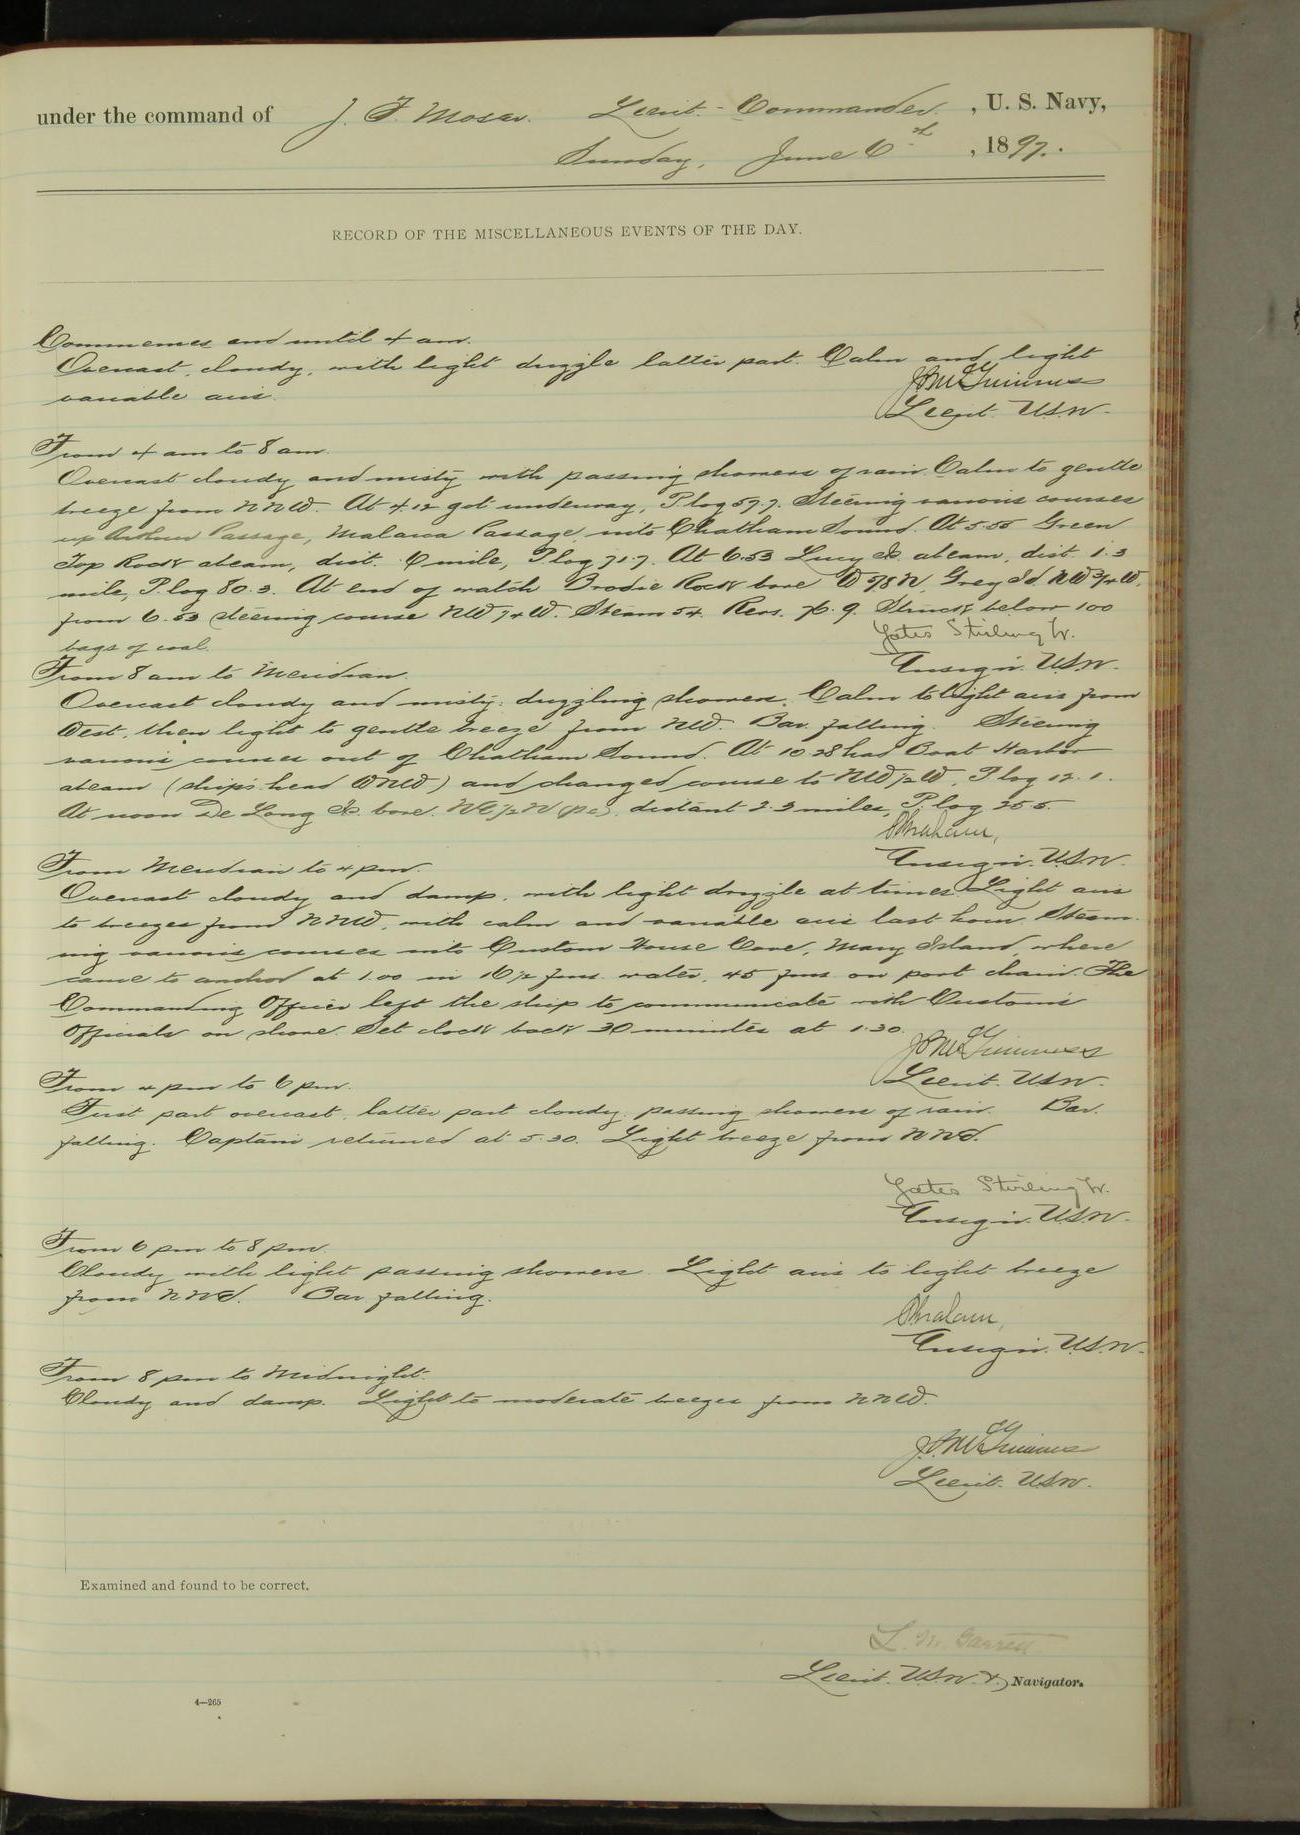 under the command of J. F. Moser. Lieut.-Commander. , U. S. Navy,
Sunday, June 6th , 1897.
RECORD OF THE MISCELLANEOUS EVENTS OF THE DAY.
Commences and until 4 am.
Overcast, cloudy, with light drizzle latter part. Calm and light
variable airs.
Lieut. U.S.N.
From 4 am to 8 am.
Overcast cloudy and misty with passing showers of rain. Calm to gentle
breeze from NNW. At 4.12 got underway, P log 57.7. Steering various courses
up Arthur Passage, Malacca Passage, into Chatham Sound. At 5.55 Green
Top Rock abeam, dist. .6 mile, P log 71.7. At 6.53 Lucy Id. abeam, dist. 1.3
mile, P. log 80.3. At end of watch Brodie Rock bore W 5/8 N, Grey Id NW 3/4 W.
from 6.53 steering course NW 1/4 W. Steam 54. Revs. 76.9. Struck below 100
bags of coal.
Yates Stirling Jr.
Ensign. U.S.N.
From 8 am to Meridian.
Overcast cloudy and misty; drizzling showers. Calm to light airs from
West, then light to gentle breeze from NW. Bar. falling. Steering
various courses out of Chatham Sound. At 10.28 had Boat Harbor
abeam (ship's head WNW) and changed course to NW 1/2 W, P log 12.1.
At noon De Long Id. bore NE 1/2 N (pc), distant 2.3 miles, P. log 25.5
Ensign. U.S.N.
From Meridian to 4 pm.
Overcast cloudy and damp, with light drizzle at times. Light airs
to breezes from NNW, with calm and variable airs last hour. Steam-
ing various courses into Custom House Cove, Mary Island, where
came to anchor at 1.00 in 16 1/2 fms. water, 45 fms. on port chain. The
Commanding Officer left the ship to communicate with Customs
Officials on shore. Set clock back 30 minutes at 1.30.
Lieut. U.S.N.
From 4 pm to 6 pm.
First part overcast, latter part cloudy, passing showers of rain. Bar.
falling. Captain returned at 5.30. Light breeze from NNW.
Yates Stirling Jr.
Ensign. U.S.N.
From 6 pm to 8 pm.
Cloudy with light passing showers. Light airs to light breeze
from NNW. Bar falling.
Ensign. U.S.N.
From 8 pm to Midnight.
Cloudy and damp. Light to moderate breezes from NNW.
Lieut. U.S.N.
Examined and found to be correct.
L. M. Garrett
Lieut. U.S.N. & Navigator.
4—265